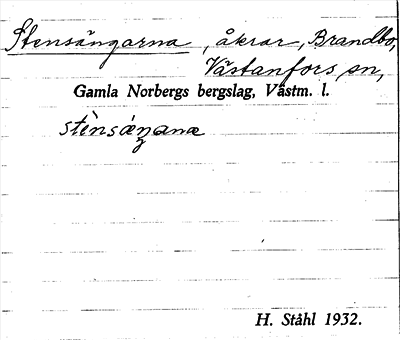 Stensängarna, åkrar, Brandbo,
Västanfors sn,
Gamla Norbergs bergslag, Västm. l.
stènsáŋana
H. Ståhl 1932.